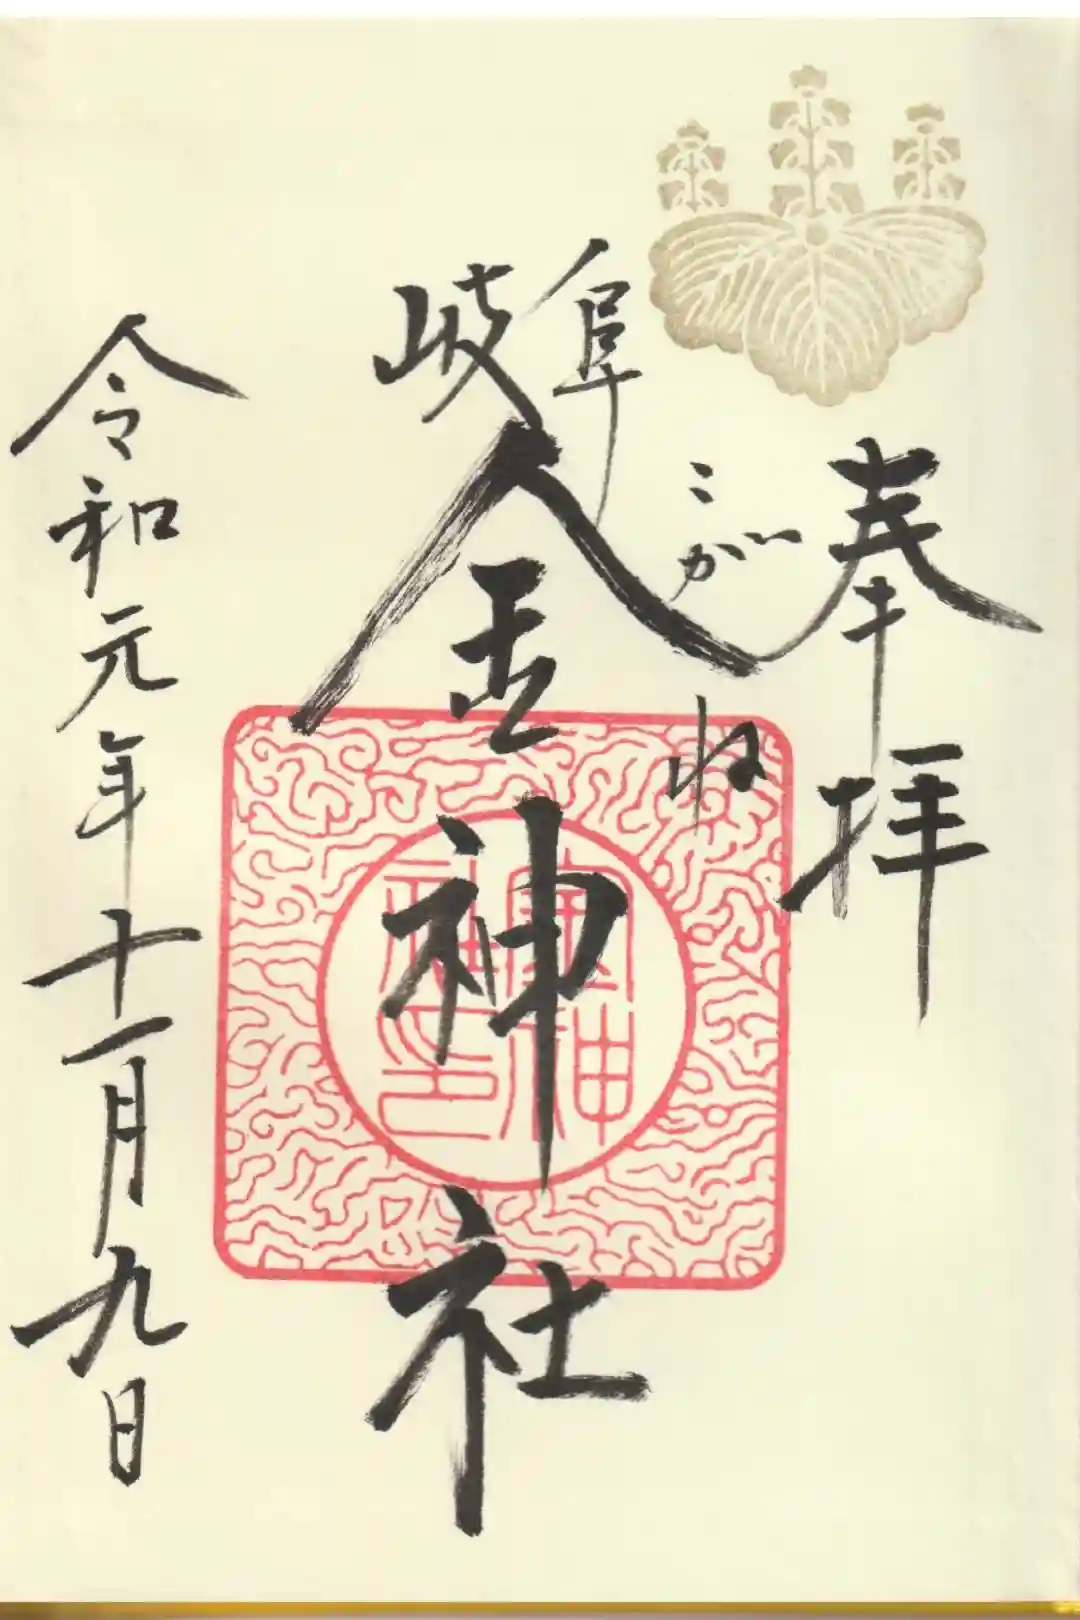 奉拝
こがね
岐阜
金神社
令和元年十一月九日